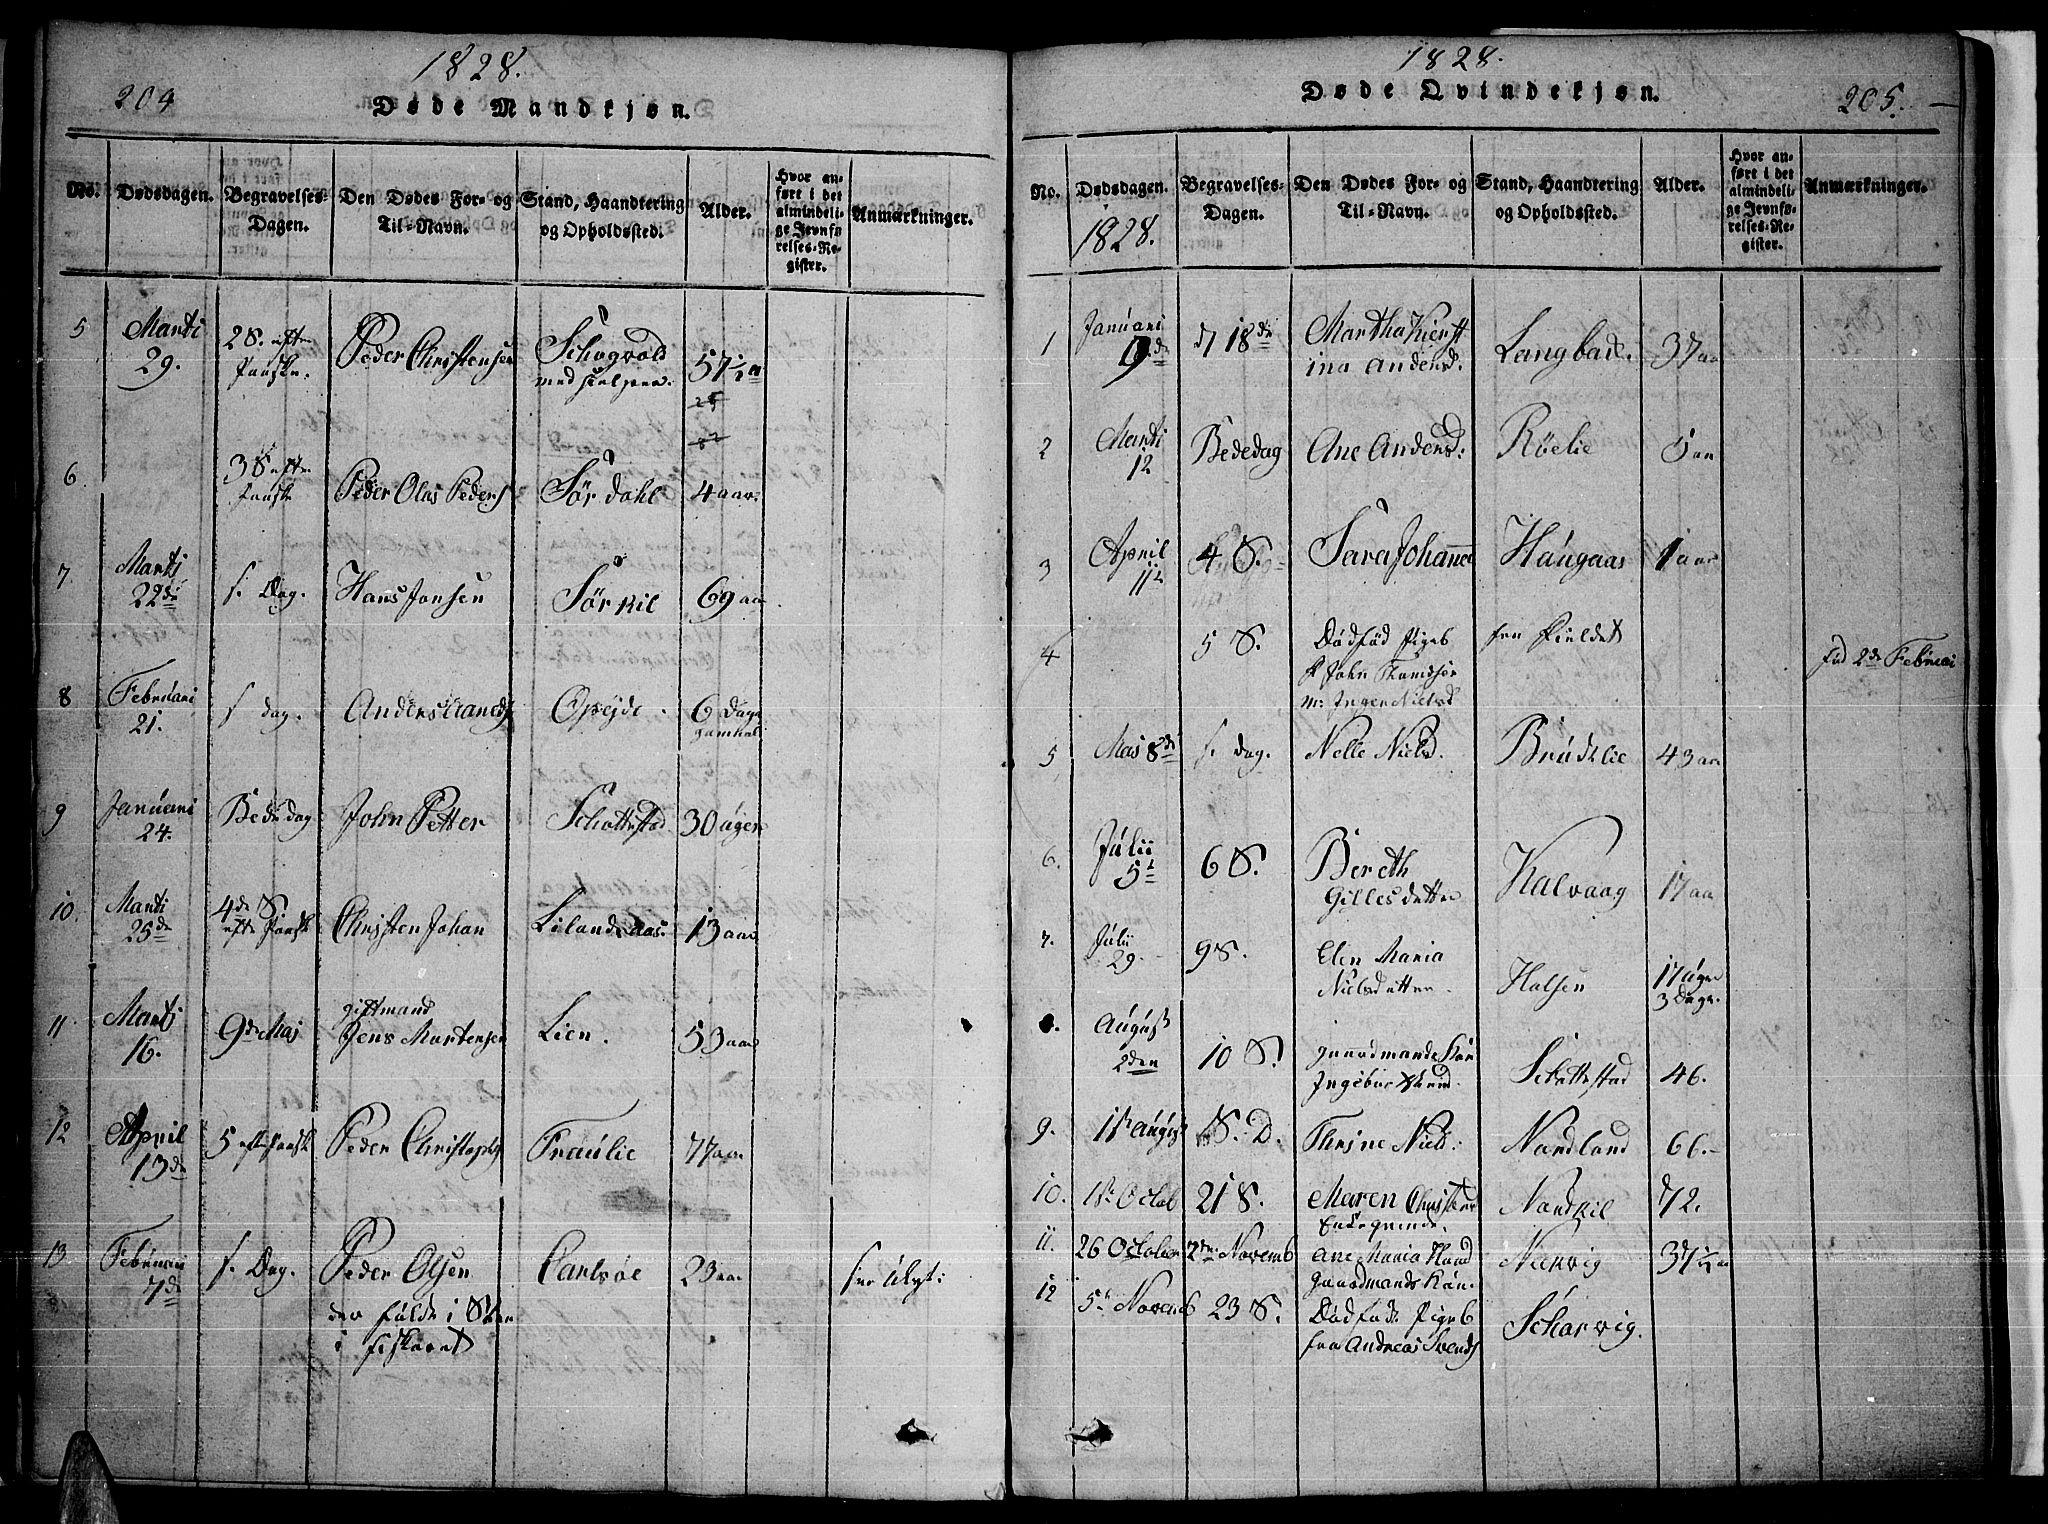 1828.
204
Døde Mandkjøn.
No.
Dødsdagen.
Begravelses-
Dagen.
Den Dødes For- og
Til-Navn.
Stand, Haandtering
og Opholdssted.
Alder.
Hvor an-
ført i det
almindeli-
ge Jevnfø-
relses-Re-
gister.
Anmærkninger.
5
Marti
29.
2 S. efter
Paaske.
Peder Christensen
57 1/2 a
6
3 S efter
Paaske
Peder Olas Peders
Sørdahl
4 aar
7
Marti
22de
s. Dag.
Hans Jonsen
Sørkil
69 aar
8
Februari
21.
s dag.
Anders
Opejde.
6 Dage
gammel
9
Januari
24.
Bededag
John Petter
Schottstad
30 Uger
10.
Marti
25de
4de S
efter Paaske
Christen Johan
Lilandsaas.
13 aar
11
Marti
16.
9de Maj
giftmand
Jens Martensen
Lien.
53 aar
12
April
13de
5 efter Paaske
Peder Christophs
Fraulie
77 aar
13
Februari
7de
s. Dag.
Peder Olsen
Carlsøe
23 aar
der fulde i Søen
i fiskeriet
1828.
Døde Qvindekjøn.
205.
No.
Dødsdagen.
1828.
Begravelses-
Dagen.
Den Dødes For- og
Til-Navn.
Stand, Haandtering
og Opholdssted.
Alder.
Hvor an-
ført i det
almindeli-
ge Jevnfø-
relses-Re-
gister.
Anmærkninger.
1
Januari
9de
d 18de
Martha Kierst
ina Andersd.
Langbak.
37 aar
2
Marti
12
Bededag
Ane Andersd:
Röelie
5 aar
3
April
11te
4 S.
Sara Johanna
Haugaas
1 aar
4
5 S.
Dødfød Pigeb
F John Thomsen
M: Inger Nielsd
fra Kieldet
fød 2de Februari
5
Mai 8de
s. dag.
Nelle Nielsd.
Brudelie
43 aar
6.
Julii
5te
6 S.
Bereth
Gillesdatter
Kalvaag
17 aar
7.
Julii
29.
9 S.
Elen Maria
Nielsdatter.
Halsen
17 Uger
3 Dage.
August
2den
10 S.
gaardmands Kone
Schottestad
46.
9.
11te August
S. D.
Thrine Nielsd:
Nordland
66.
10.
Octob
21 S.
Maren Christens
Enkeqvinde.
Nordkil
72.
11.
26 October
2den Novemb
Ane Maria
gaardmands Kone.
Narvig
37 1/2 a
12
5te Novemb
23 S.
Dødfød Pigeb
fra Andreas Svends
Scharvig.